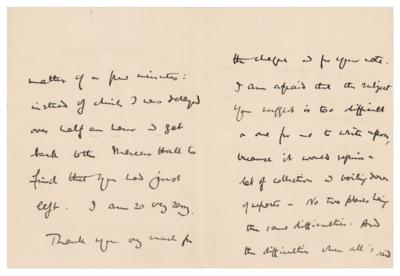 matter of a few minutes:
instead of which I was delayed
over half an hour & got
back to the Mercers Hall to
find that you had just
left. I am so very sorry.
Thank you very much for
the cheque & for your note.
I am afraid that the subject
you suggest is too difficult
a one for me to write upon,
because it would require a
lot of collection & boiling down
of reports — No two places having
the same difficulties. And
the difficulties when all's said